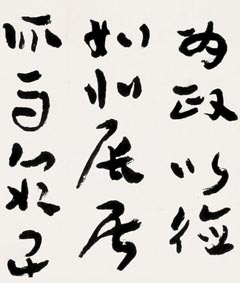 为政以德
如北辰居
所而众星